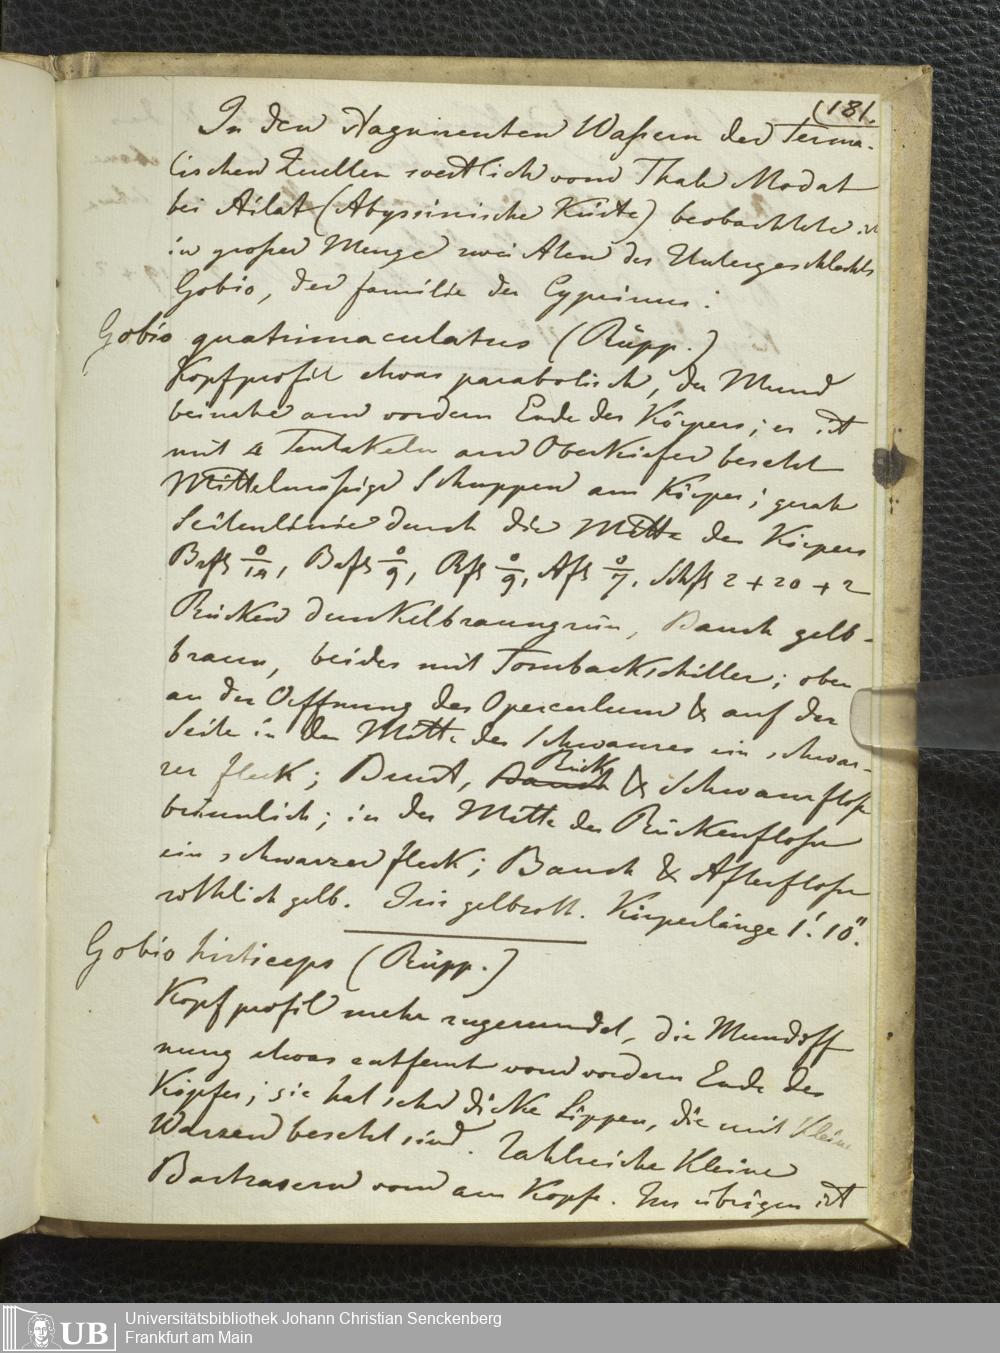 (181.
In den stagnirenten Waßern der Terma-
lischen Quellen westlich vom Thale Modat
bei Ailat (Abyssinische Küste) beobachtete ich
in großer Menge zwei Arten des Untergeschlechts
Gobio, der familie der Cyprinus:
Gobio quatrimaculatus (Rüpp.)
Kopfprofil etwas parabolisch, der Mund
beinahe am vordern Ende des Körpers; er ist
mit 4 Tentakeln am Oberkiefer besetzt
Mittelmäßige Schuppen am Körper; gerade
Seitenlinie durch die Mitte des Körpers
Brfl 0/14, Bafl 0/9, Rfl 0/9, Afl 0/7. Schfl 2 + 20 + 2
Rücken dunkelbraungrün, Bauch gelb-
braun, beides mit Tombackschiller; oben
an der Oeffnung des Operculum & auf der
Seite in der Mitte des Schwanzes ein schwar-
zer fleck; Brust, Bauch Rück & Schwanzfloße
bräunlich; in der Mitte der Rückenfloße
ein schwarzer fleck; Bauch & Afterfloße
röthlich gelb. Iris gelbroth. Körperlänge 1'. 10".
Gobio hirticeps (Rüpp.)
Kopfprofil mehr zugerundet, die Mundöff
nung etwas entfernt vom vordern Ende des
Kopfes; sie hat sehr dicke Lippen, die mit kleine
Warzen besetzt sind. Zahlreiche kleine
Bartfasern vorn am Kopfe. Im übrigen ist
UB
Universitätsbibliothek Johann Christian Senckenberg
Frankfurt am Main